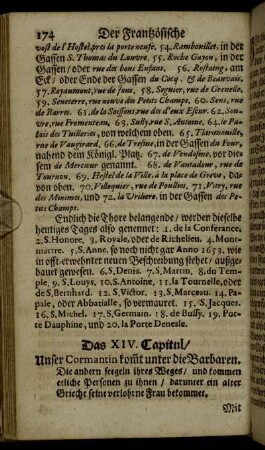 174 Der Frantzösische
vost de l'Hostel, pres la porte neufe. 54. Ramboüillet, in der
Gassen S. Thomas du Louvre. 55. Roche Guyon, in der
Gassen / oder rue des bons Enfans. 56. Rostaing, am
Eck / oder Ende der Gassen du Cocq, & de Beauvais.
57. Royaumont, rue de jour. 58. Seguier, rue de Grenelle.
59. Seneterre, rue neuve des Petits Champs. 60. Sens, rue
de Barres. 61. de la Soissons rue des d'eux Escus. 62.
rue Fromenteau, 63. Sully, rue S. Antoine, 64. le Palais
lais des Tuilleries, von welchem oben. 65.
rue de Vaugirard, 66. de Tresme, in der Gassen du Four,
nahend dem Königl. Platz. 67. de Vendosme, vor diesem
sem de Mercœur genannt. 68. de Vantadour, rue de
Tournon. 69. Hostel de la Ville, à la place de Greve, davon
von oben. 70. Villequier, rue de Poullies, 71. Vitry, rue
des Minimes, und 72. la Vrilliere, in der Gassen des Petits
Champs.
Endlich die Thore belangende / werden dieselbe
heutiges Tages also genennet: 1. de la Conferance,
2. S. Honore, 3. Royale, oder de Richelieu, 4. Montmartre
5. S. Anne, so noch nicht gar Anno 1653. wie
in offt erwehnter neuen Beschreibung stehet / außgebauet
gewesen. 6. S. Denis. 7. S. Martin, 8. du Temple,
9. S. Louys. 10. S. Antoine, 11. la Tournelle, oder
de S. Bernhard. 12. S. Victor, 13. S. Marceau. 14. Papale,
oder Abbatialle, so vermauret. 15. S. Jacques.
16. S. Michel. 17. S. Germain. 18. de Bussy. 19. Porte
Dauphine, und 20. la Porte Denesle.
Das XIV. Capitul /
Unser Cormantin kom̃t unter die Barbaren.
Die andern seegeln ihres Weges / und kommen
etliche Personen zu ihnen / darunter ein alter
Griech seine verlohrne Frau bekommet.
Mit